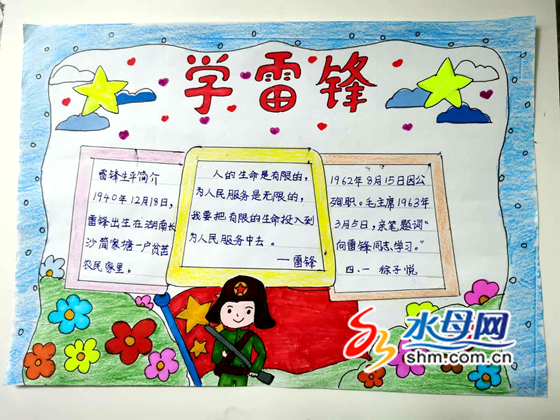 学雷锋
雷锋生平简介
1940年12月18日,
雷锋出生在湖南长
沙简家塘一户贫苦
农民家里。
人的生命是有限的,
为人民服务是无限的,
我要把有限的生命投入到
为人民服务中去。
—雷锋
1962年8月15日因公
殉职。毛主席1963年
3月5日,亲笔题词“
向雷锋同志学习。”
四.一 徐子悦
水母网
shm.com.cn